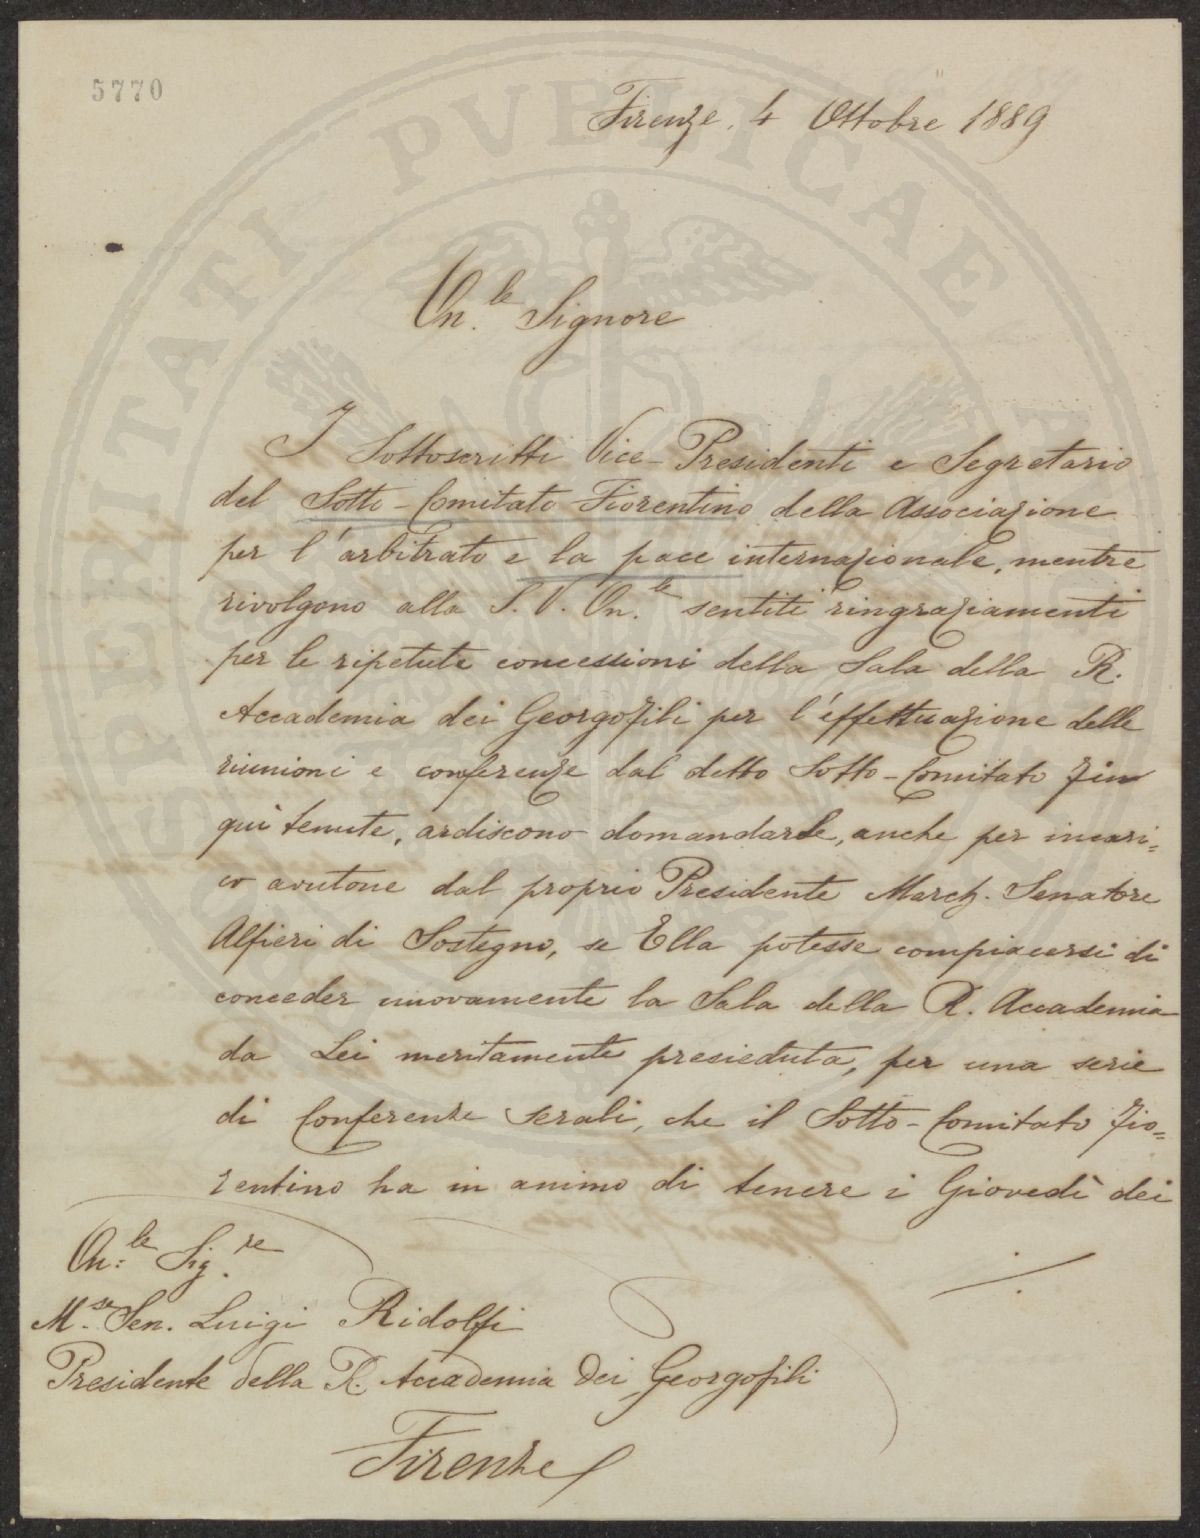 5770
Firenze, 4 Ottobre 1889
On.le Signore
I Sottoscritti Vice-Presidenti e Segretario
del Sotto-Comitato Fiorentino della Associazione
per l'arbitrato e la pace internazionale, mentre
rivolgono alla S. V. On.le sentiti ringraziamenti
per le ripetute concessioni della Sala della R.
Accademia dei Georgofili per l'effettuazione delle
riunioni e conferenze dal detto Sotto-Comitato fin
qui tenute, ardiscono domandarle, anche per incari=
co avutone dal proprio Presidente March. Senatore
Alfieri di Sostegno, se Ella potesse compiacersi di
conceder nuovamente la Sala della R. Accademia
da Lei meritamente presieduta, per una serie
di Conferenze serali, che il Sotto-Comitato Fio=
rentino ha in animo di tenere i Giovedì dei
./.
On.le Sig.re
M.se Sen. Luigi Ridolfi
Presidente della R. Accademia dei Georgofili
Firenze